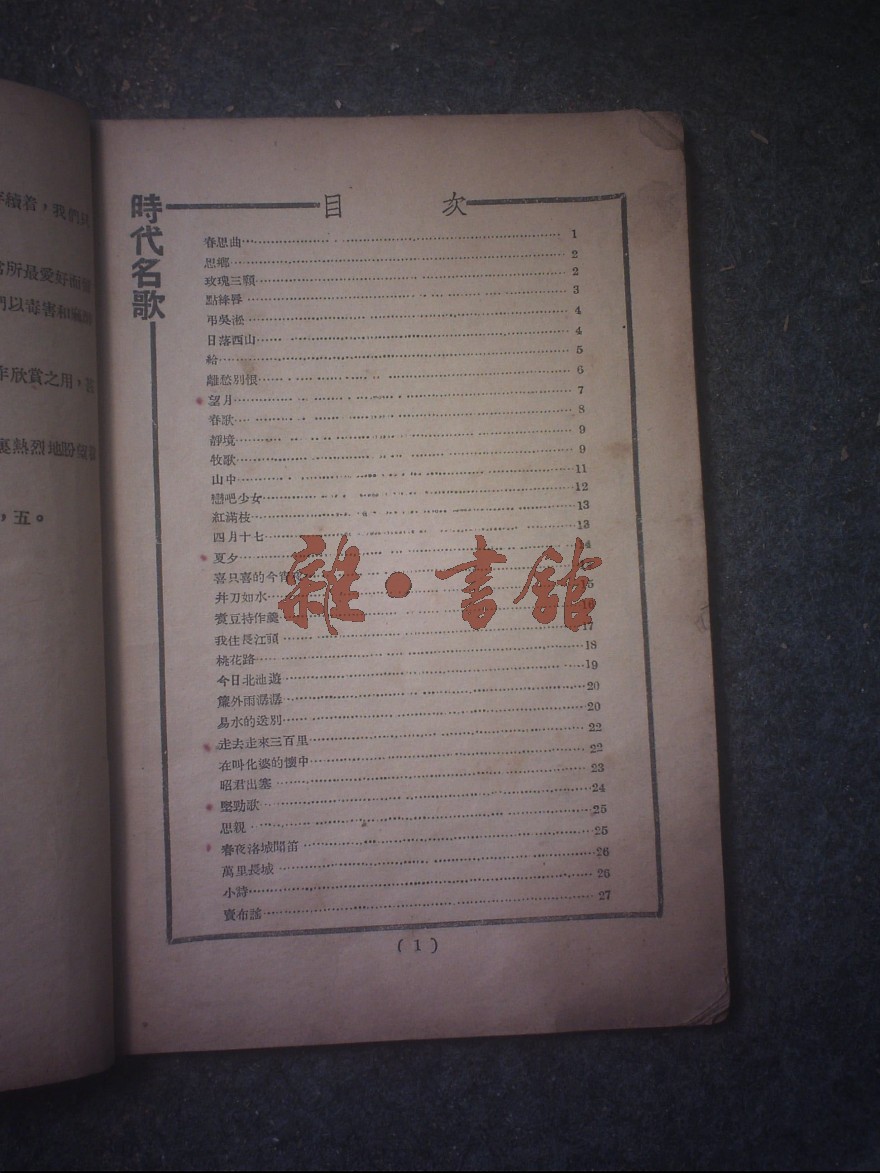 續着，我們以
所最愛好而
們以毒害和
作欣賞之用，
裏熱烈地盼
，五。
時代名歌
目 次
春思曲 1
思鄉 2
玫瑰三願 2
點絳唇 3
弔吳淞 4
日落西山 4
給 5
離愁別恨 6
望月 7
春歌 8
靜境 9
牧歌 9
山中 11
戀吧少女 12
紅滿枝 13
四月十七 13
夏夕 4
喜只喜的今宵
井刀如水 15
煑豆持作羹 16
我住長江頭 17
桃花路 18
今日北池遊 19
簾外雨潺潺 20
易水的送別 20
走去走來三百里 22
在叫化婆的懷中 22
昭君出塞 23
堅勁歌 24
思親 25
春夜洛城聞笛 25
萬里長城 26
小詩 26
賣布謠 27
( 1 )
雜·書館